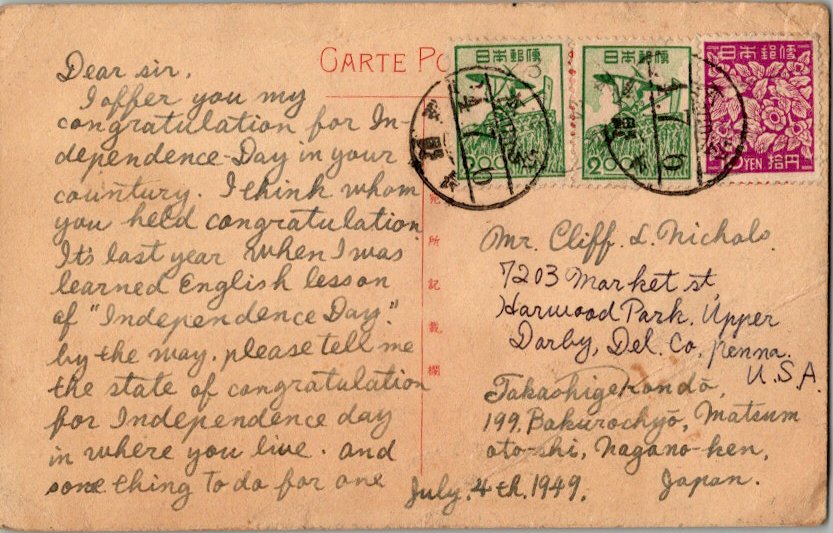 CARTE PO
日本郵便
2.00
日本郵便
2.00
日本郵便
YEN 拾円
Dear sir.
I offer you my
congratulation for In-
dependence-Day in your
countury. I think whom
you held congratulation
It's last year when I was
learned English lesson
of "Independence Day."
by the way. please tell me
the state of congratulation
for Independence day
in where you live. and
some thing to do for one
宛所記載欄
Mr. Cliff. L. Nichols.
7203 Market st,
Harwood Park, Upper
Darby, Del. Co, penna.
U.S.A.
Takashige Kondō,
199, Bakurochyō, Matsum
oto-shi, Nagano-ken,
Japan.
July. 4th. 1949.